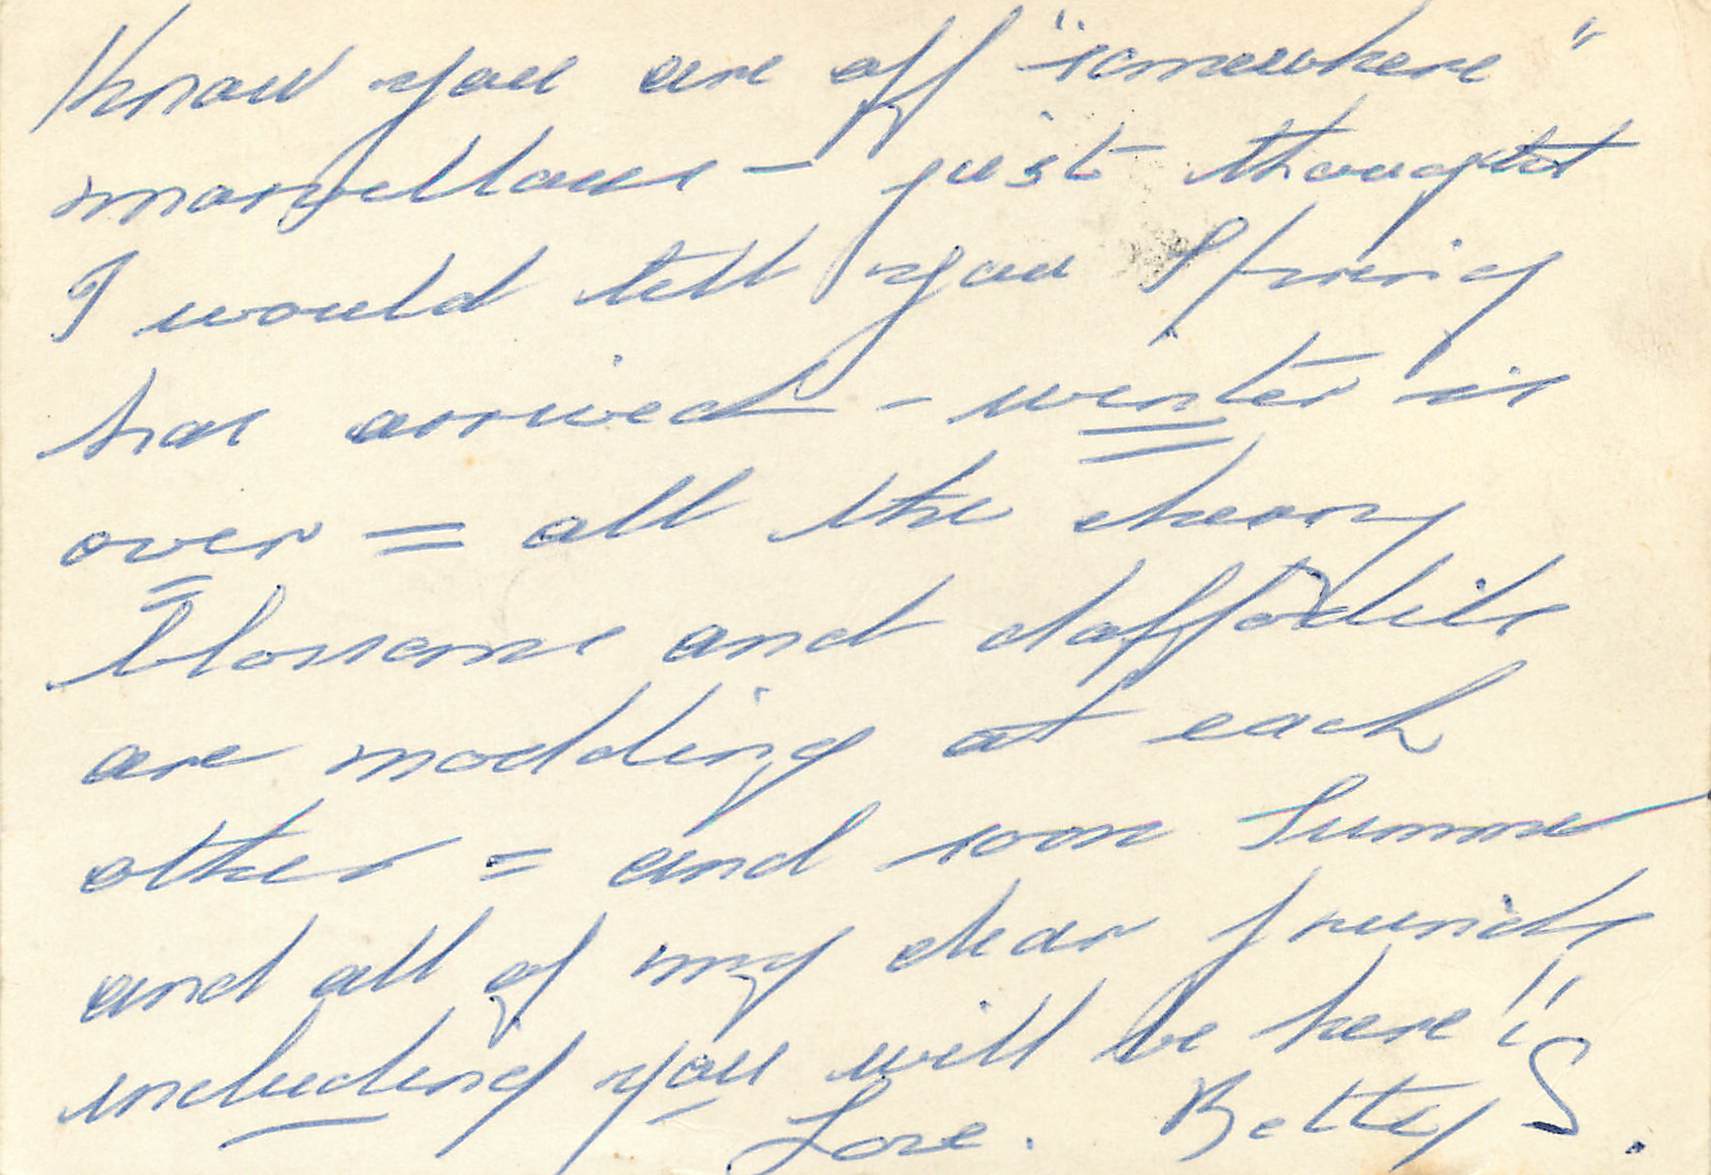 I know you are off "somewhere"
marvellous - just thought
I would tell you Spring
has arrived - winter is
over = all the cherry
blossoms and daffodils
are nodding at each
other = and soon Summer
and all of my dear friends
including you will be here!!
Love. Betty S.